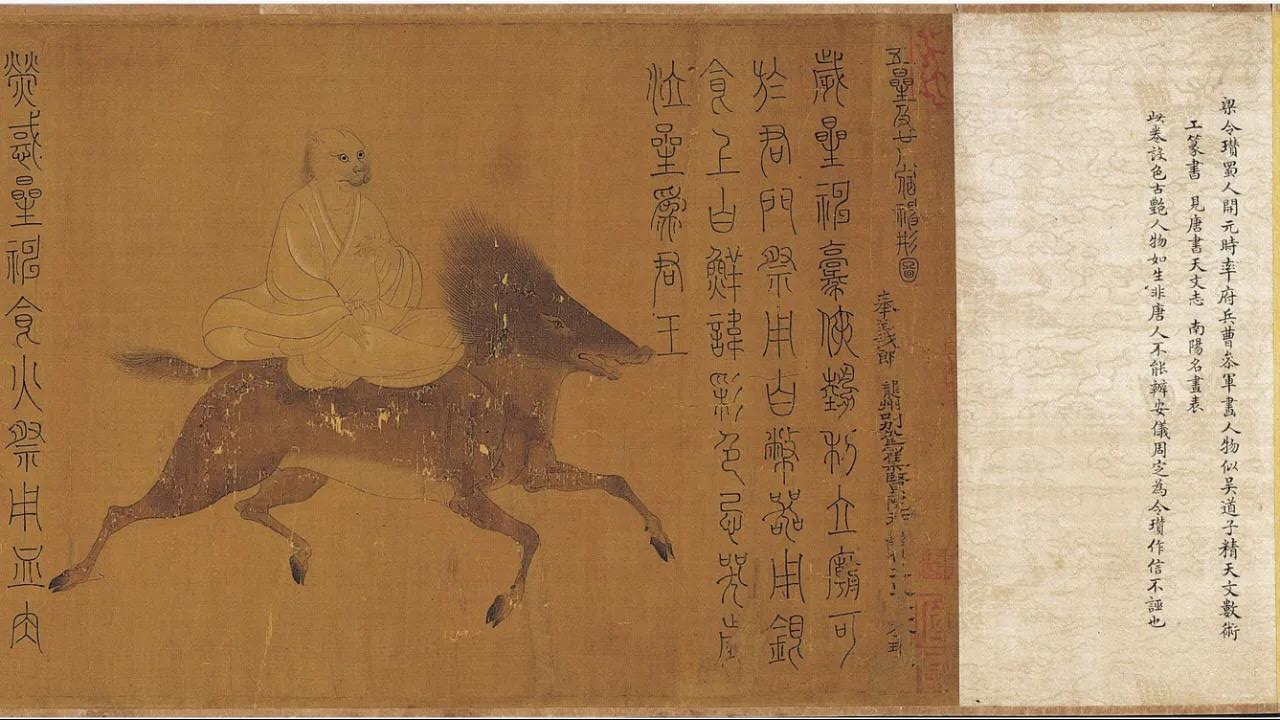 梁令瓚蜀人開元時率府兵曹叅軍畫人物似吴道子精天文數術
工篆書 見唐書天文志 南陽名畫表
此卷設色古艷人物如生非唐人不能辦安儀周定為令瓚作信不誣也
五星及廿八宿神形圖
奉義郎 隴州別駕集賢院
歲星神豪俠勢利立廟可
於君門祭用白幣器用銀
食上白鮮諱彩色忌哭
泣星為君王
熒惑星神食火祭用血肉